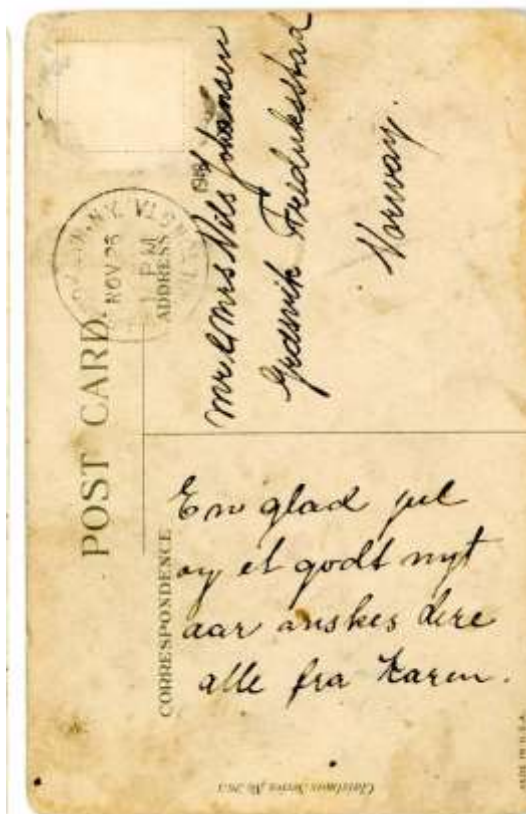 POST CARD.
N.Y.
NOV 28
ADDRESS
Mr & Mrs Nils Johansen
Fredrikstad
Norway.
CORRESPONDENCE
En glad jul
og et godt nyt
aar ønskes dere
alle fra Karen.
Christmas Series No 263
MADE IN U.S.A.